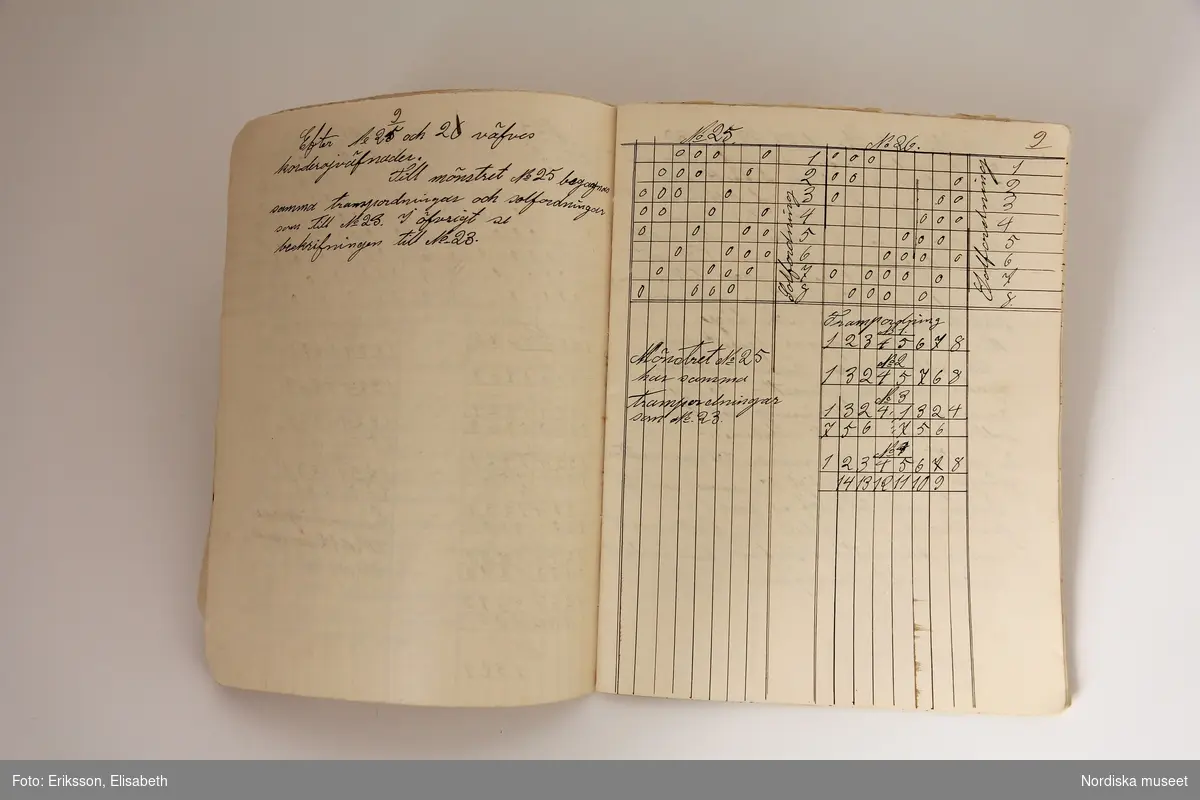 9
Efter № 25 och 26 väfves
korderojväfnader.
Till mönstret № 25 begagnas
samma trampordningar och solfordningar
som till № 23. I öfvrigt se
beskrifningen till № 23.
9
№ 25. № 26.
o o o o 1 o o o 1
o o o o 2 o o o 2
o o o o 3 o o o 3
o o o o 4 o o o 4
o o o o 5 o o o 5
o o o o 6 o o o o 6
o o o o 7 o o o o o 7
o o o o 8 o o o o 8
Solfordning
Solfordning
Mönstret № 25
har samma
trampordningar
som № 23.
Trampordning
№ 1.
1 2 3 4 5 6 7 8
№ 2
1 3 2 4 5 7 6 8
№ 3
1 3 2 4 1 3 2 4
7 5 6 7 5 6
№ 4
1 2 3 4 5 6 7 8
14 13 12 11 10 9
Foto: Eriksson, Elisabeth
Nordiska museet